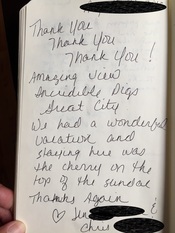 Thank You
Thank You
Thank You!
Amazing View
Incredible Digs
Great City
We had a wonderful
vacation and
staying here was
the cherry on the
top of the sundae
Thanks Again
♡ &
Chris